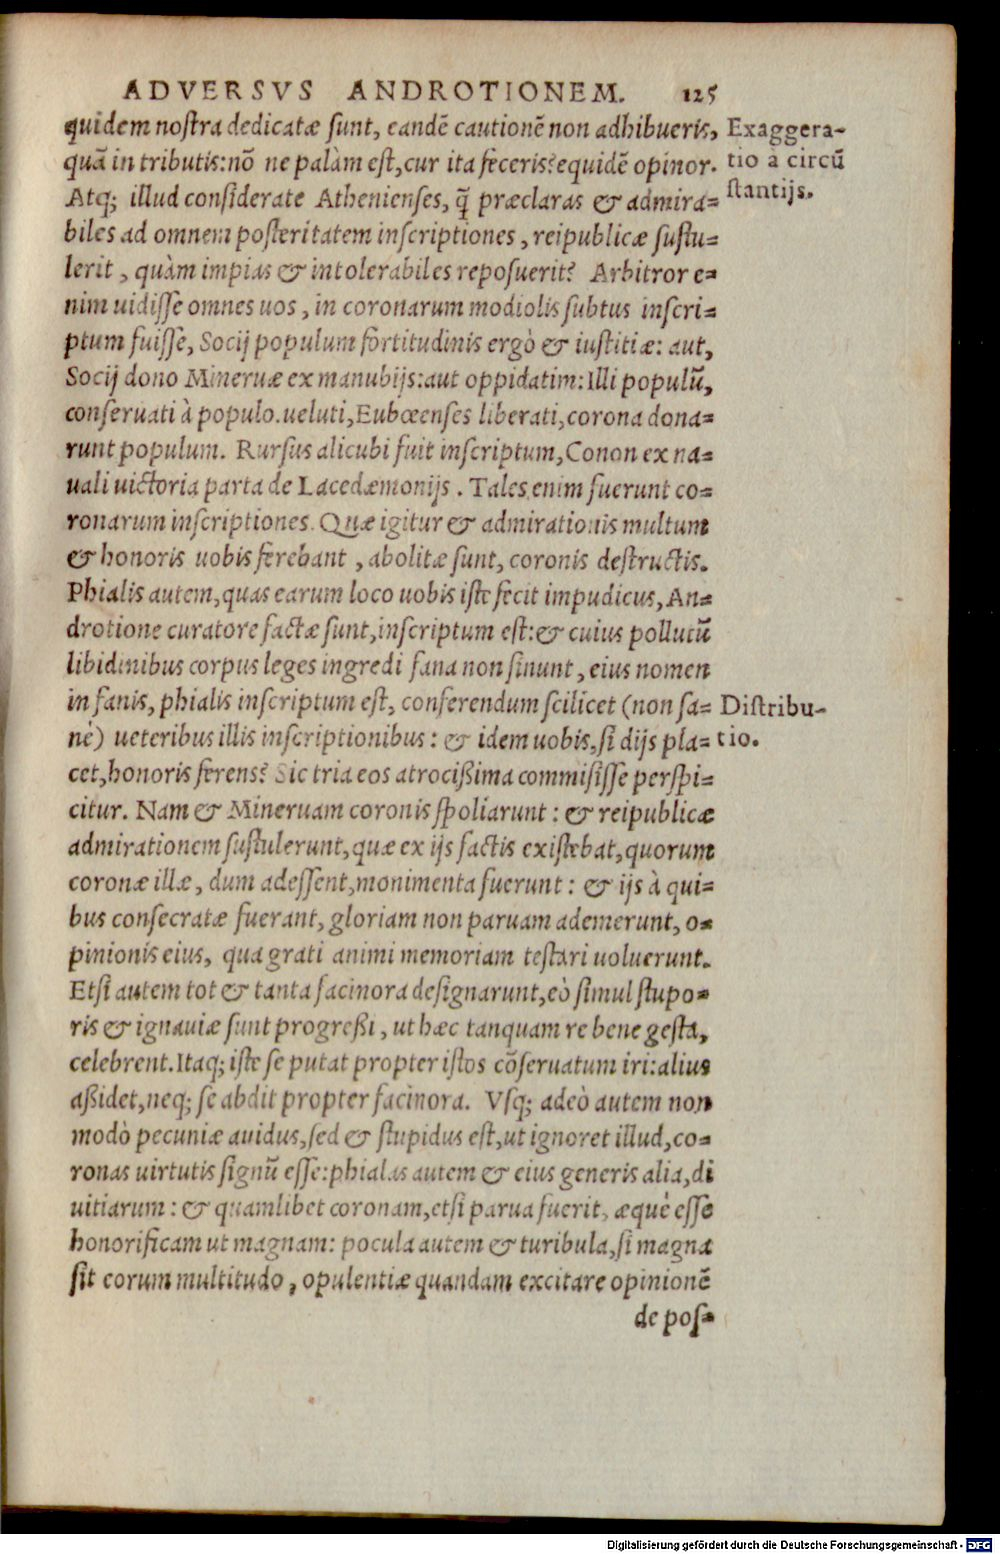 ADVERSVS ANDROTIONEM. 125
quidem nostra dedicatæ sunt, eandē cautionē non adhibueris,
quā in tributis: nō ne palàm est, cur ita feceris? equidē opinor.
Atq; illud considerate Athenienses, q̃ præclaras & admira=
biles ad omnem posteritatem inscriptiones, reipublicæ sustu=
lerit, quàm impias & intolerabiles reposuerit? Arbitror e=
nim uidisse omnes uos, in coronarum modiolis subtus inscri=
ptum fuisse, Socij populum fortitudinis ergò & iustitiæ: aut,
Socij dono Mineruæ ex manubijs: aut oppidatim: Illi populū,
conseruati à populo. ueluti, Eubœenses liberati, corona dona=
runt populum. Rursus alicubi fuit inscriptum, Conon ex na=
uali uictoria parta de Lacedæmonijs. Tales enim fuerunt co=
ronarum inscriptiones. Quæ igitur & admirationis multum
& honoris uobis ferebant, abolitæ sunt, coronis destructis.
Phialis autem, quas earum loco uobis iste fecit impudicus, An=
drotione curatore factæ sunt, inscriptum est: & cuius pollutū
libidinibus corpus leges ingredi fana non sinunt, eius nomen
in fanis, phialis inscriptum est, conferendum scilicet (non sa=
nè) ueteribus illis inscriptionibus: & idem uobis, si dijs pla=
cet, honoris ferens? Sic tria eos atrocißima commisisse perspi=
citur. Nam & Mineruam coronis spoliarunt: & reipublicæ
admirationem sustulerunt, quæ ex ijs factis existebat, quorum
coronæ illæ, dum adessent, monimenta fuerunt: & ijs à qui=
bus consecratæ fuerant, gloriam non paruam ademerunt, o=
pinionis eius, qua grati animi memoriam testari uoluerunt.
Etsi autem tot & tanta facinora designarunt, eò simul stupo=
ris & ignauiæ sunt progreßi, ut hæc tanquam re bene gesta,
celebrent. Itaq; iste se putat propter istos cōseruatum iri: alius
aßidet, neq; se abdit propter facinora. Vsq; adeò autem non
modò pecuniæ auidus, sed & stupidus est, ut ignoret illud, co=
ronas uirtutis signū esse: phialas autem & eius generis alia, di
uitiarum: & quamlibet coronam, etsi parua fuerit, æquè esse
honorificam ut magnam: pocula autem & turibula, si magna
sit eorum multitudo, opulentiæ quandam excitare opinionē
de pos=
Exaggera-
tio à circū
stantijs.
Distribu-
tio.
Digitalisierung gefördert durch die Deutsche Forschungsgemeinschaft - DFG